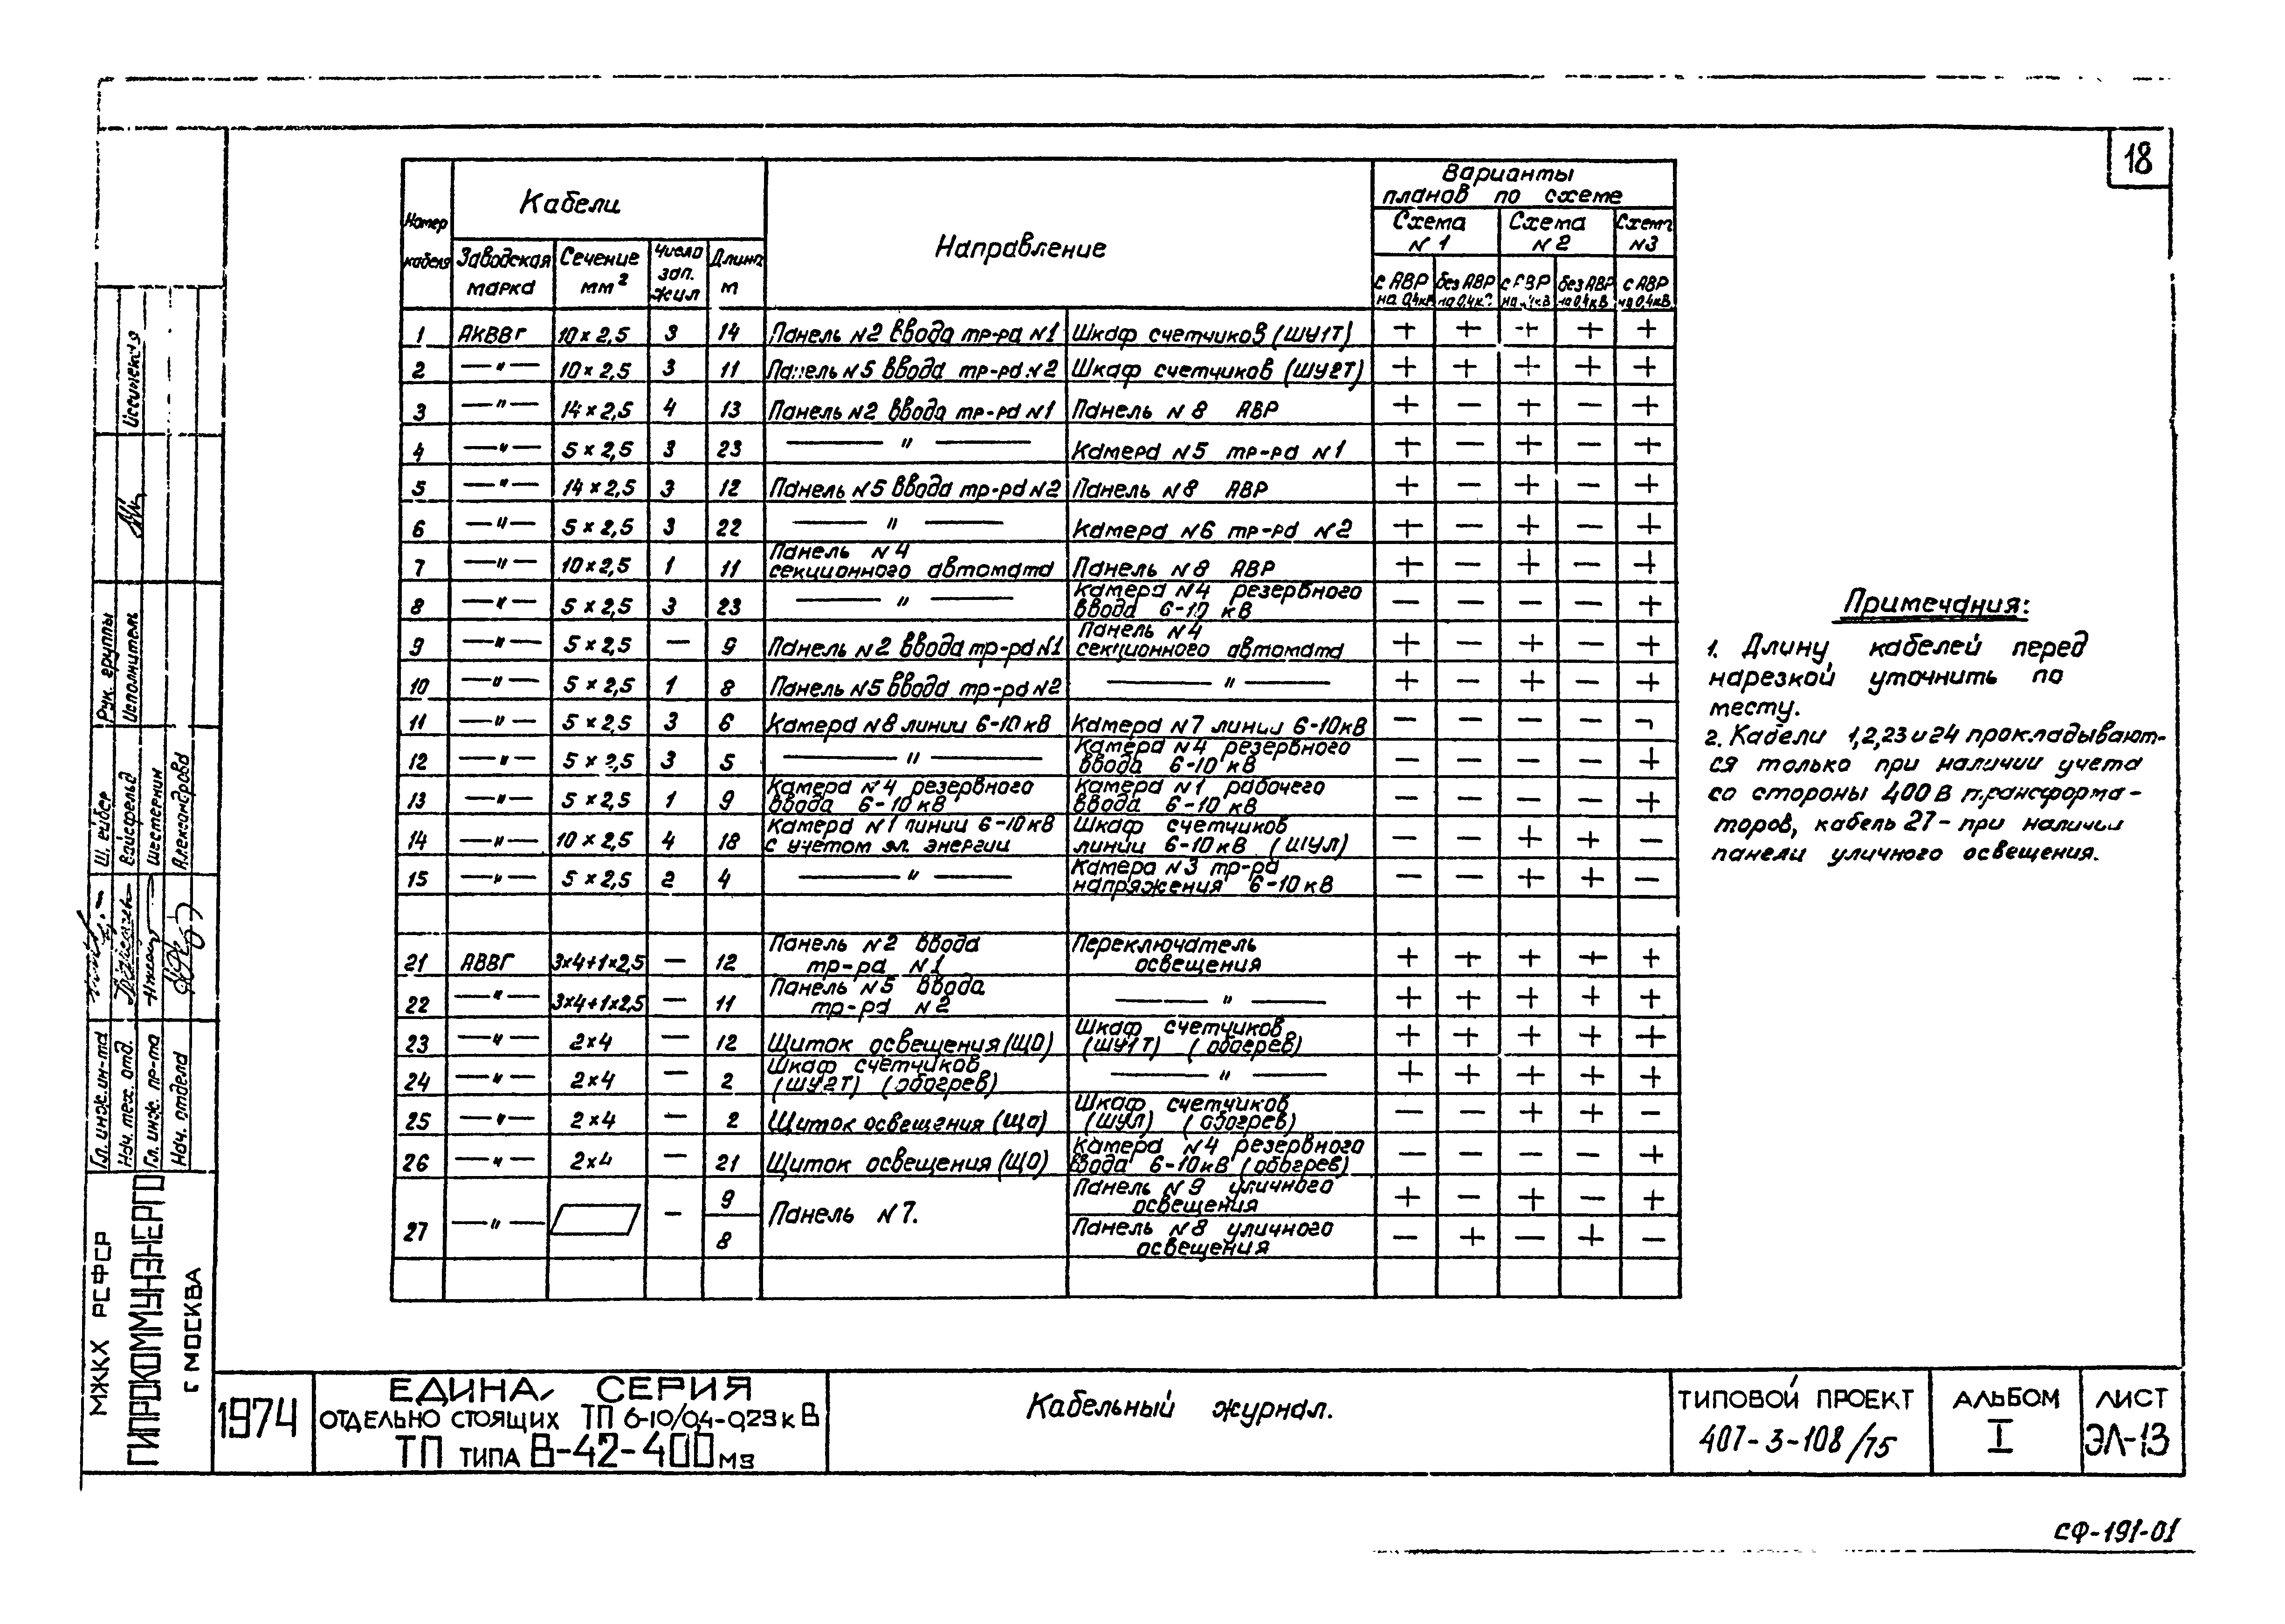 18
Номер кабеля
Кабели
Направление
Варианты
планов по схеме
Заводская марка
Сечение мм²
Число зап. жил
Длина м
Схема №1
Схема №2
Схема №3
с АВР на 0,4кВ
без АВР на 0,4кВ
с АВР на 0,4кВ
без АВР на 0,4кВ
с АВР на 0,4кВ
1 АКВВГ 10×2,5 3 14 Панель №2 ввода тр-ра №1 Шкаф счетчиков (ШУ1Т) + + + + +
2 —"— 10×2,5 3 11 Панель №5 ввода тр-ра №2 Шкаф счетчиков (ШУ2Т) + + + + +
3 —"— 14×2,5 4 13 Панель №2 ввода тр-ра №1 Панель №8 АВР + — + — +
4 —"— 5×2,5 3 23 —"— Камера №5 тр-ра №1 + — + — +
5 —"— 14×2,5 3 12 Панель №5 ввода тр-ра №2 Панель №8 АВР + — + — +
6 —"— 5×2,5 3 22 —"— Камера №6 тр-ра №2 + — + — +
7 —"— 10×2,5 1 11 Панель №4 секционного автомата Панель №8 АВР + — + — +
8 —"— 5×2,5 3 23 —"— Камера №4 резервного ввода 6-10 кВ — — — — +
9 —"— 5×2,5 — 9 Панель №2 ввода тр-ра №1 Панель №4 секционного автомата + — + — +
10 —"— 5×2,5 1 8 Панель №5 ввода тр-ра №2 —"— + — + — +
11 —"— 5×2,5 3 6 Камера №8 линии 6-10 кВ Камера №7 линии 6-10кВ — — — —
12 —"— 5×2,5 3 5 —"— Камера №4 резервного ввода 6-10 кВ — — — — +
13 —"— 5×2,5 1 9 Камера №4 резервного ввода 6-10 кВ Камера №1 рабочего ввода 6-10 кВ — — — — +
14 —"— 10×2,5 4 18 Камера №1 линии 6-10кВ с учетом эл. энергии Шкаф счетчиков линии 6-10кВ (ШУЛ) — — + + —
15 —"— 5×2,5 2 4 —"— Камера №3 тр-ра напряжения 6-10кВ — — + + —
21 АВВГ 3×4+1×2,5 — 12 Панель №2 ввода тр-ра №1 Переключатель освещения + + + + +
22 —"— 3×4+1×2,5 — 11 Панель №5 ввода тр-ра №2 —"— + + + + +
23 —"— 2×4 — 12 Щиток освещения (ЩО) Шкаф счетчиков (ШУ1Т) (обогрев) + + + + +
24 —"— 2×4 — 2 Шкаф счетчиков (ШУ2Т) (обогрев) —"— + + + + +
25 —"— 2×4 — 2 Щиток освещения (ЩО) Шкаф счетчиков (ШУЛ) (обогрев) — — + + —
26 —"— 2×4 — 21 Щиток освещения (ЩО) Камера №4 резервного ввода 6-10кВ (обогрев) — — — — +
27 —"— — 9 Панель №7. Панель №9 уличного освещения + — + — +
8 Панель №8 уличного освещения — + — + —
Примечания:
1. Длину кабелей перед
нарезкой уточнить по
месту.
2. Кабели 1,2,23 и 24 прокладывают-
ся только при наличии учета
со стороны 400 В трансформа-
торов, кабель 27- при наличии
панели уличного освещения.
Рук. группы
Исполнитель
Ш. ейбер
Вайсфельд
Шестернин
Александрова
Гл. инж. ин-та
Нач. тех. отд.
Гл. инж. пр-та
Нач. отдела
МЖКХ РСФСР
ГИПРОКОММУНЭНЕРГО
г МОСКВА
1974
ЕДИНАЯ СЕРИЯ
ОТДЕЛЬНО СТОЯЩИХ ТП 6-10/0,4-0,23 кВ
ТП ТИПА В-42-400 м3
Кабельный журнал.
ТИПОВОЙ ПРОЕКТ
407-3-108/75
АЛЬБОМ
I
ЛИСТ
ЭЛ-13
СФ-191-01